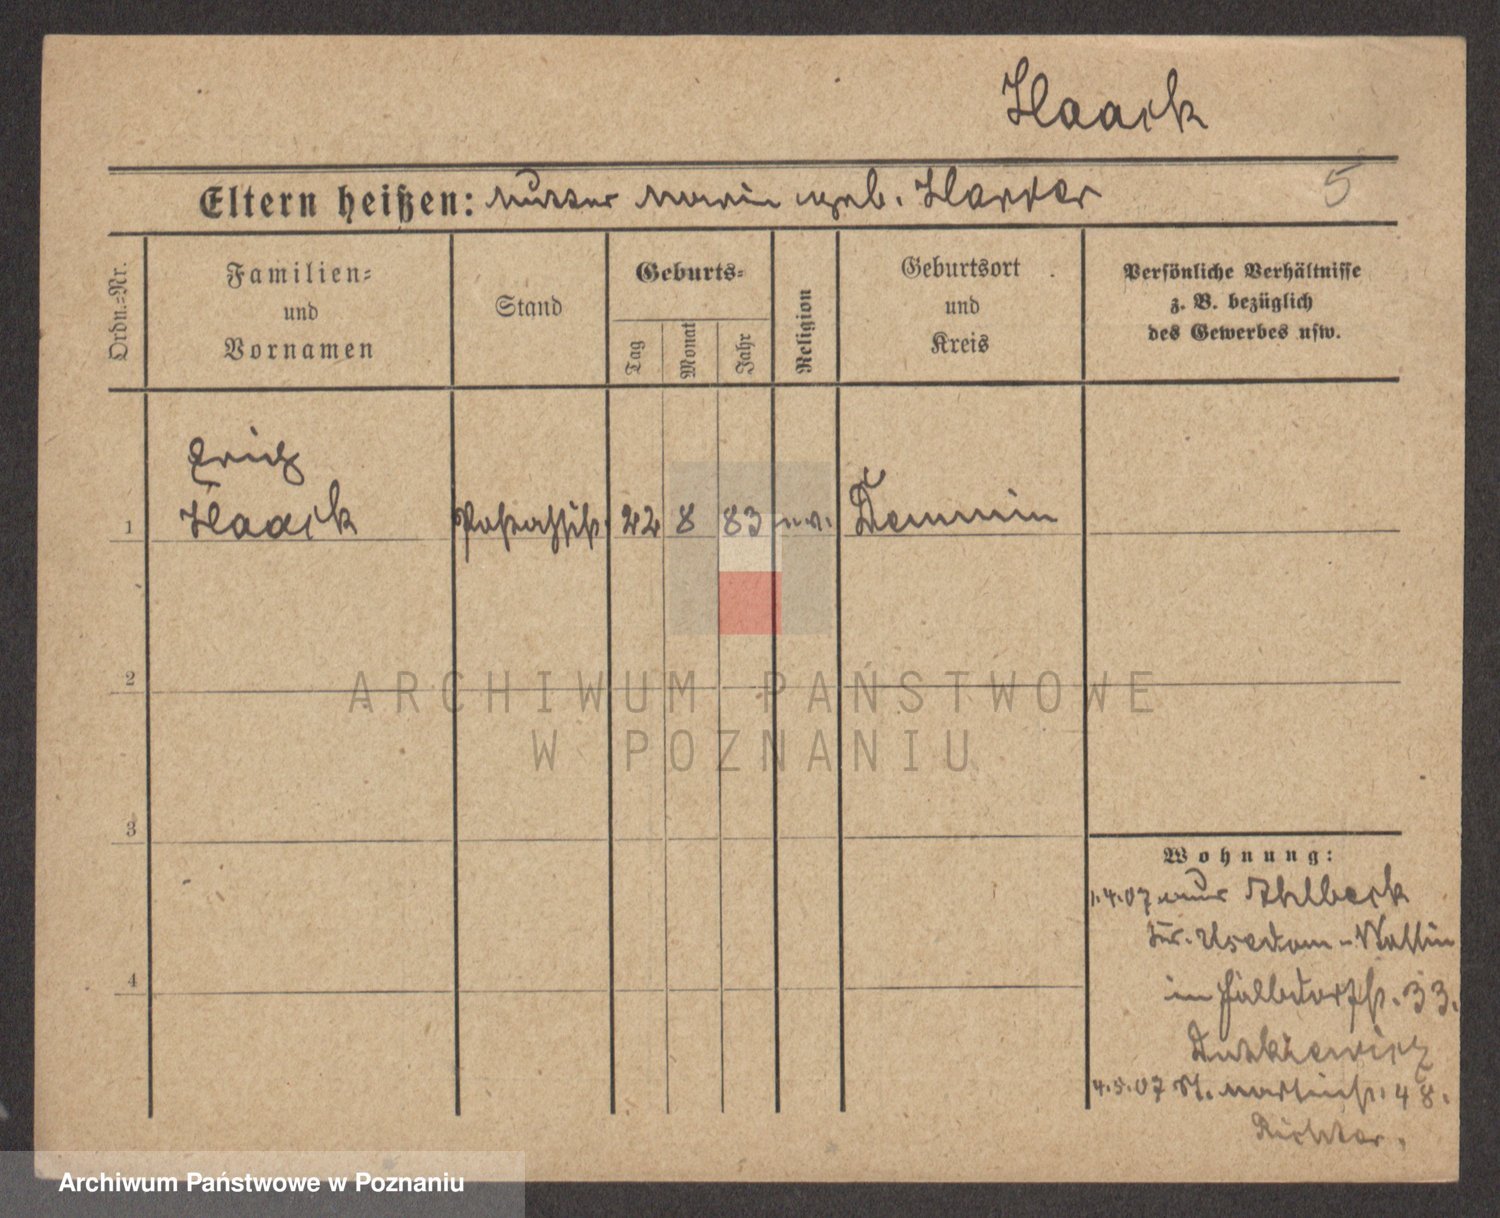 Haack
Eltern heißen: Mutter Marie geb. Harder
5
Ordn.-Nr.
Familien-
und
Vornamen
Stand
Geburts-
Tag
Monat
Jahr
Religion
Geburtsort
und
Kreis
Persönliche Verhältnisse
z. B. bezüglich
des Gewerbes usw.
Erich
1 Haack 22 8 83 ev. Demmin
2
ARCHIWUM PAŃSTWOWE
W POZNANIU
3
Wohnung:
1.4.07 aus Ahlbeck
Kr. Usedom-Wollin
4
33.
4.5.07 St. Martinstr. 48.
Richter.
Archiwum Państwowe w Poznaniu